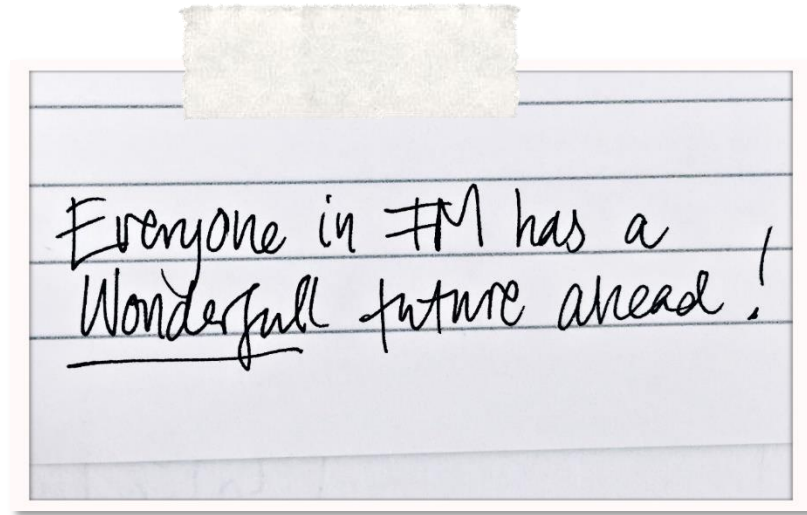 Everyone in FM has a
Wonderfull future ahead!